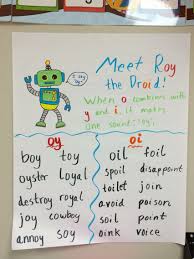 I say "oy"
Meet Roy
the Droid!
When o combines with
y and i, it makes
one sound: "oy"
oy
oi
boy toy
oyster loyal
destroy royal
joy cowboy
annoy soy
oil foil
spoil disappoint
toilet join
avoid poison
soil point
oink voice